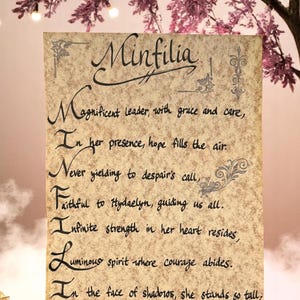 Minfilia
Magnificent leader, with grace and care,
In her presence, hope fills the air.
Never yielding to despair's call,
Faithful to Hydaelyn, guiding us all.
Infinite strength in her heart resides,
Luminous spirit where courage abides.
In the face of shadows, she stands so tall,